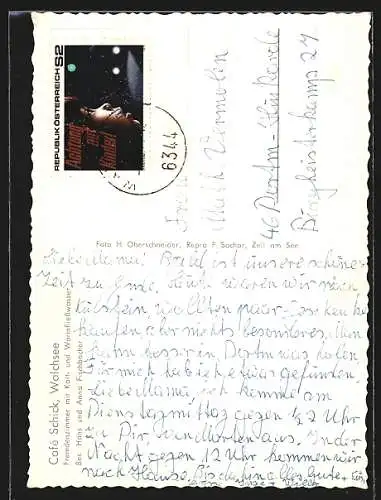 REPUBLIK ÖSTERREICH S2
Achtung
auf
Kinder!
6344
Frau
46 Dortm-
Foto H. Oberschneider, Repro F. Sochor, Zell am See
Café Schick, Walchsee
Fremdenzimmer mit Kalt- und Warmfließwasser
Bes. Hans und Anna Fischbacher
Liebe Mama! Bald ist unsere schöne
Zeit zu Ende, heute waren wir nach
Kufstein, wollten paar
kaufen aber nichts besonderes, Man
kann besser in Dortm was holen
Für mich habe ich etwas gefunden,
Liebe Mama, ich komme am
Dienstagmittag gegen ½ 2 Uhr
zu Dir, von aus. In der
Nacht gegen 12 Uhr kommen wir
nach Hause, Bis dahin alles Gute